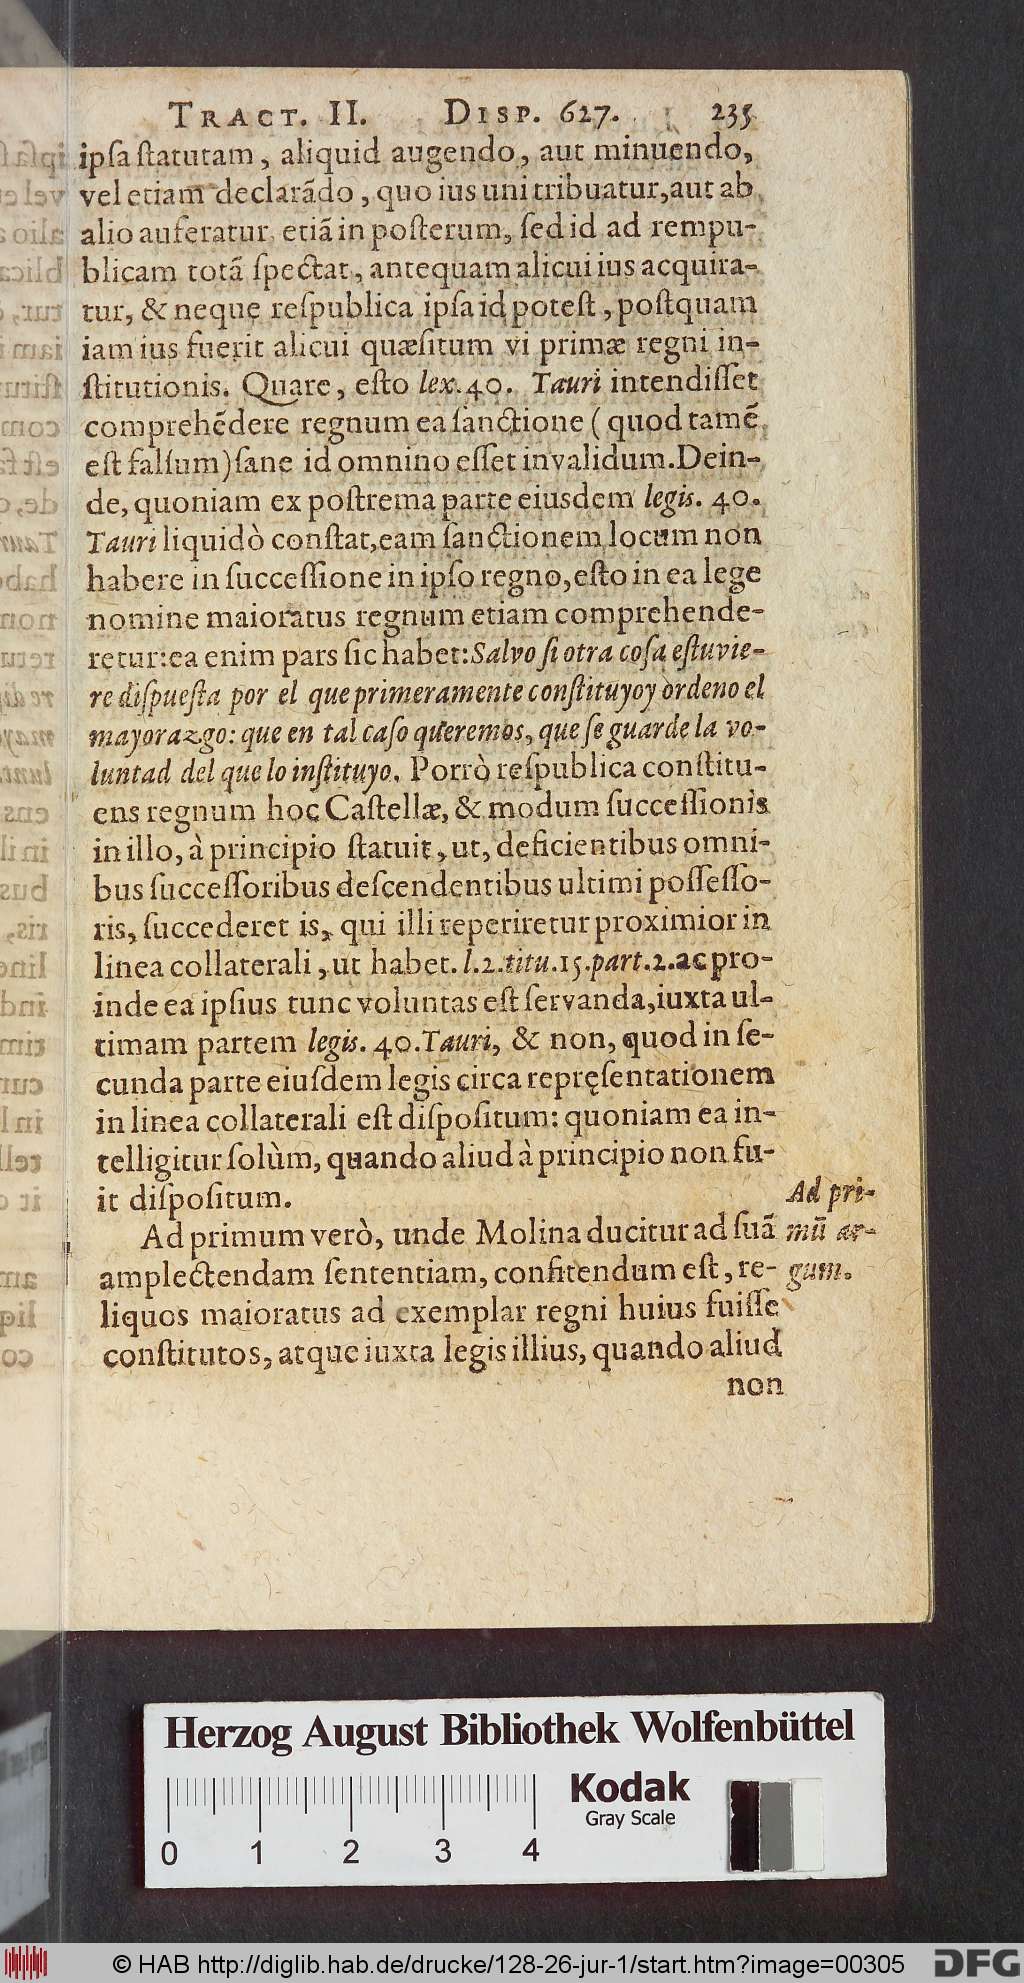 TRACT. II. DISP. 627. 235
ipſa ſtatutam, aliquid augendo, aut minuendo,
vel etiam declarãdo, quo ius uni tribuatur, aut ab
alio auferatur etiã in poſterum, ſed id ad rempu-
blicam totã ſpectat, antequam alicui ius acquira-
tur, & neque reſpublica ipſa id poteſt, poſtquam
iam ius fuerit alicui quæſitum vi primæ regni in-
ſtitutionis. Quare, eſto lex. 40. Tauri intendiſſet
comprehẽdere regnum ea ſanctione (quod tamẽ
eſt falſum) ſane id omnino eſſet invalidum. Dein-
de, quoniam ex poſtrema parte eiusdem legis. 40.
Tauri liquidò conſtat, eam ſanctionem locum non
habere in ſucceſſione in ipſo regno, eſto in ea lege
nomine maioratus regnum etiam comprehende-
retur: ea enim pars ſic habet: Salvo ſi otra coſa eſtuvie-
re diſpueſta por el que primeramente conſtituyo y ordeno el
mayorazgo: que en tal caſo queremos, que ſe guarde la vo-
luntad del que lo inſtituyo. Porrò reſpublica conſtitu-
ens regnum hoc Caſtellæ, & modum ſucceſſionis
in illo, à principio ſtatuit, ut, deficientibus omni-
bus ſucceſſoribus deſcendentibus ultimi poſſeſſo-
ris, ſuccederet is, qui illi reperiretur proximior in
linea collaterali, ut habet. l. 2. titu. 15. part. 2. ac pro-
inde ea ipſius tunc voluntas eſt ſervanda, iuxta ul-
timam partem legis. 40. Tauri, & non, quod in ſe-
cunda parte eiuſdem legis circa repręſentationem
in linea collaterali eſt diſpoſitum: quoniam ea in-
telligitur ſolùm, quando aliud à principio non fu-
it diſpoſitum.
Ad primum verò, unde Molina ducitur ad ſuã
amplectendam ſententiam, confitendum eſt, re-
liquos maioratus ad exemplar regni huius fuiſſe
conſtitutos, atque iuxta legis illius, quando aliud
non
Ad pri-
mũ ar-
gum.
Herzog August Bibliothek Wolfenbüttel
Kodak
Gray Scale
0 1 2 3 4
© HAB http://diglib.hab.de/drucke/128-26-jur-1/start.htm?image=00305
DFG